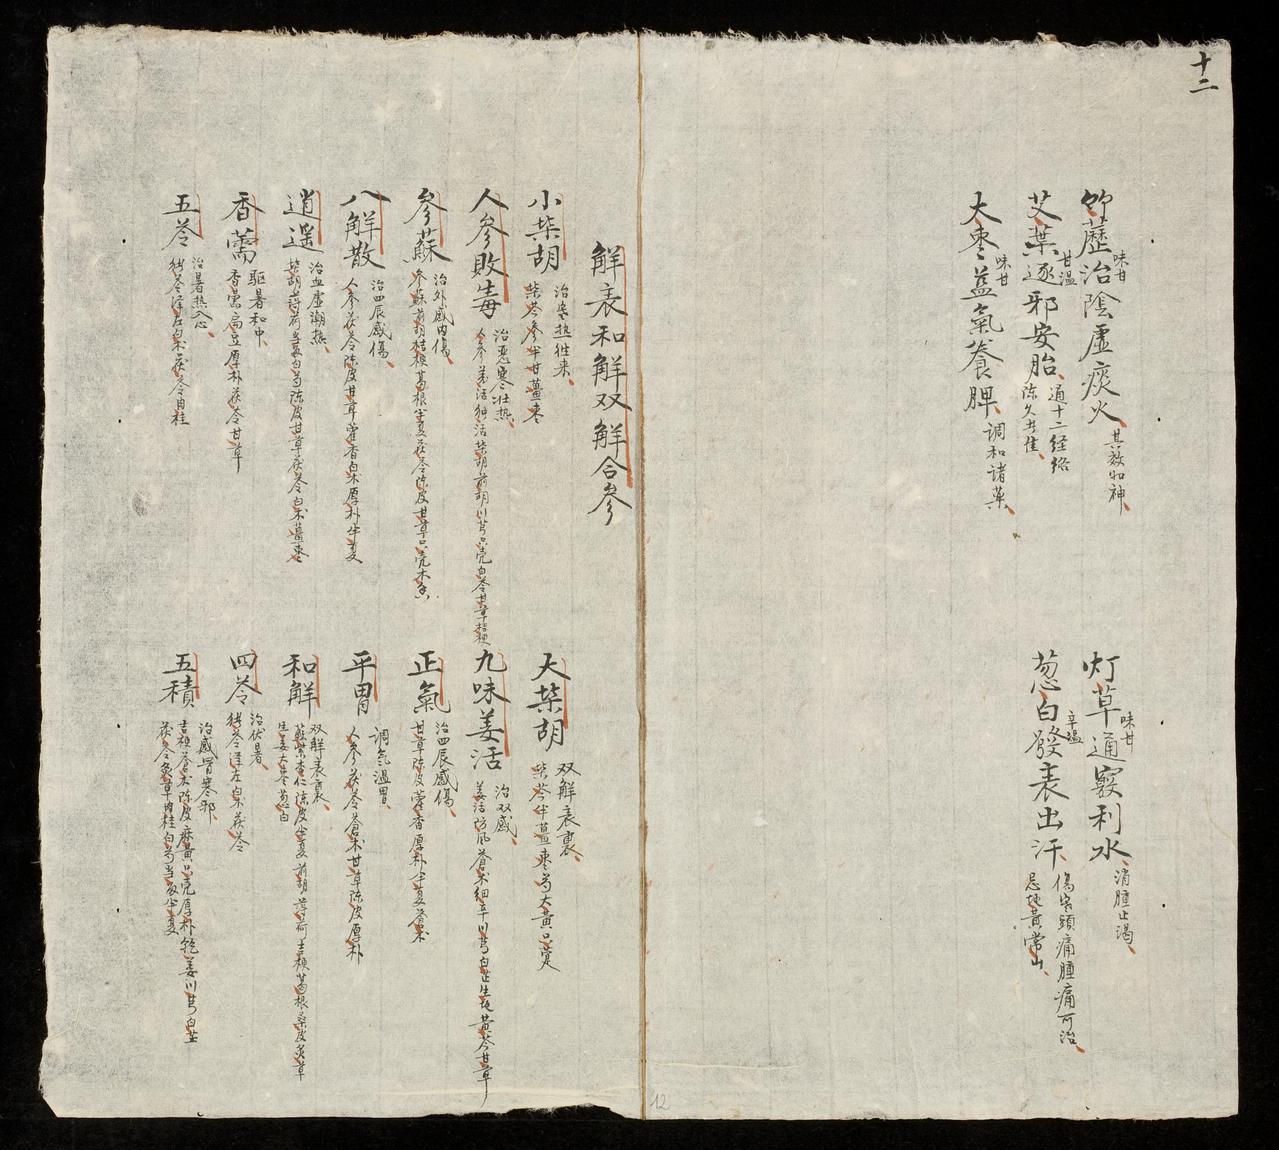 十二
竹藶治陰虛痰火 味甘 其效如神
灯草通竅利水 味甘 消腫止渴
艾葉逐邪安胎 甘溫 通十二经络 陈久者佳
葱白發表出汗 辛溫 傷寒頭痛腫痛可治 忌地黄常山
大枣益氣养脾 味甘 调和诸薬
解表和解双解合參
小柴胡 治寒热往来 柴芩參半甘薑枣
大柴胡 双解表裏 柴芩半薑枣芍大黄只寔
人參敗毒 治恶寒壮热 人參羌活独活柴胡前胡川芎只壳白苓甘草桔梗
九味姜活 治双感 姜活防风蒼术细辛川芎白芷生地黄芩甘草
參蘇 治外感内傷 參蘇前胡桔梗葛根半夏茯苓陈皮甘草只壳木香
正氣 治四辰感傷 甘草陈皮藿香厚朴半夏蒼术
八解散 治四辰感傷 人參茯苓陈皮甘草藿香白术厚朴半夏
平胃 调氣温胃 人參茯苓蒼术甘草陈皮厚朴
逍遥 治血虛潮热 柴胡薄荷当皈白芍陈皮甘草茯苓白术薑枣
和解 双解表裏 蘇紫杏仁陈皮半夏前胡薄荷吉梗葛根桑皮炙草生姜大枣葱白
香薷 驱暑和中 香薷扁豆厚朴茯苓甘草
四苓 治伏暑 猪苓泽左白术茯苓
五苓 治暑热入心 猪苓泽左白术茯苓肉桂
五積 治感冒寒邪 吉梗蒼术陈皮麻黄只壳厚朴乾姜川芎白芷茯苓炙草肉桂白芍当皈半夏
12